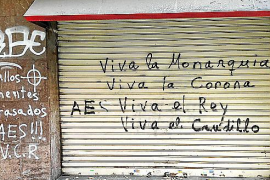 Viva la Monarquia
Viva la Corona
AES Viva el Rey
Viva el Caudillo
mentes
rasados
AES!!!
V.C.R